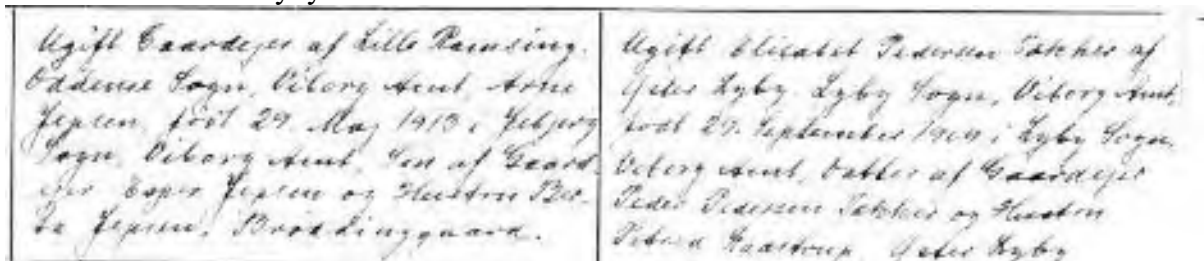 Ugift Gaardejer af Lille Ramsing.
Oddense Sogn, Viborg Amt, Arne
Jepsen, født 29. Maj 1913 i Jebjerg
Sogn, Viborg Amt, Søn af Gaard-
ejer Esper Jepsen og Hustru Ber-
ta Jepsen,
Ugift Elisabet Pedersen Tækker af
Øster Lyby. Lyby Sogn, Viborg Amt,
født 27. September i Lyby Sogn,
Viborg Amt, Datter af Gaardejer
Peder Pedersen Tækker og Hustru
Øster Lyby